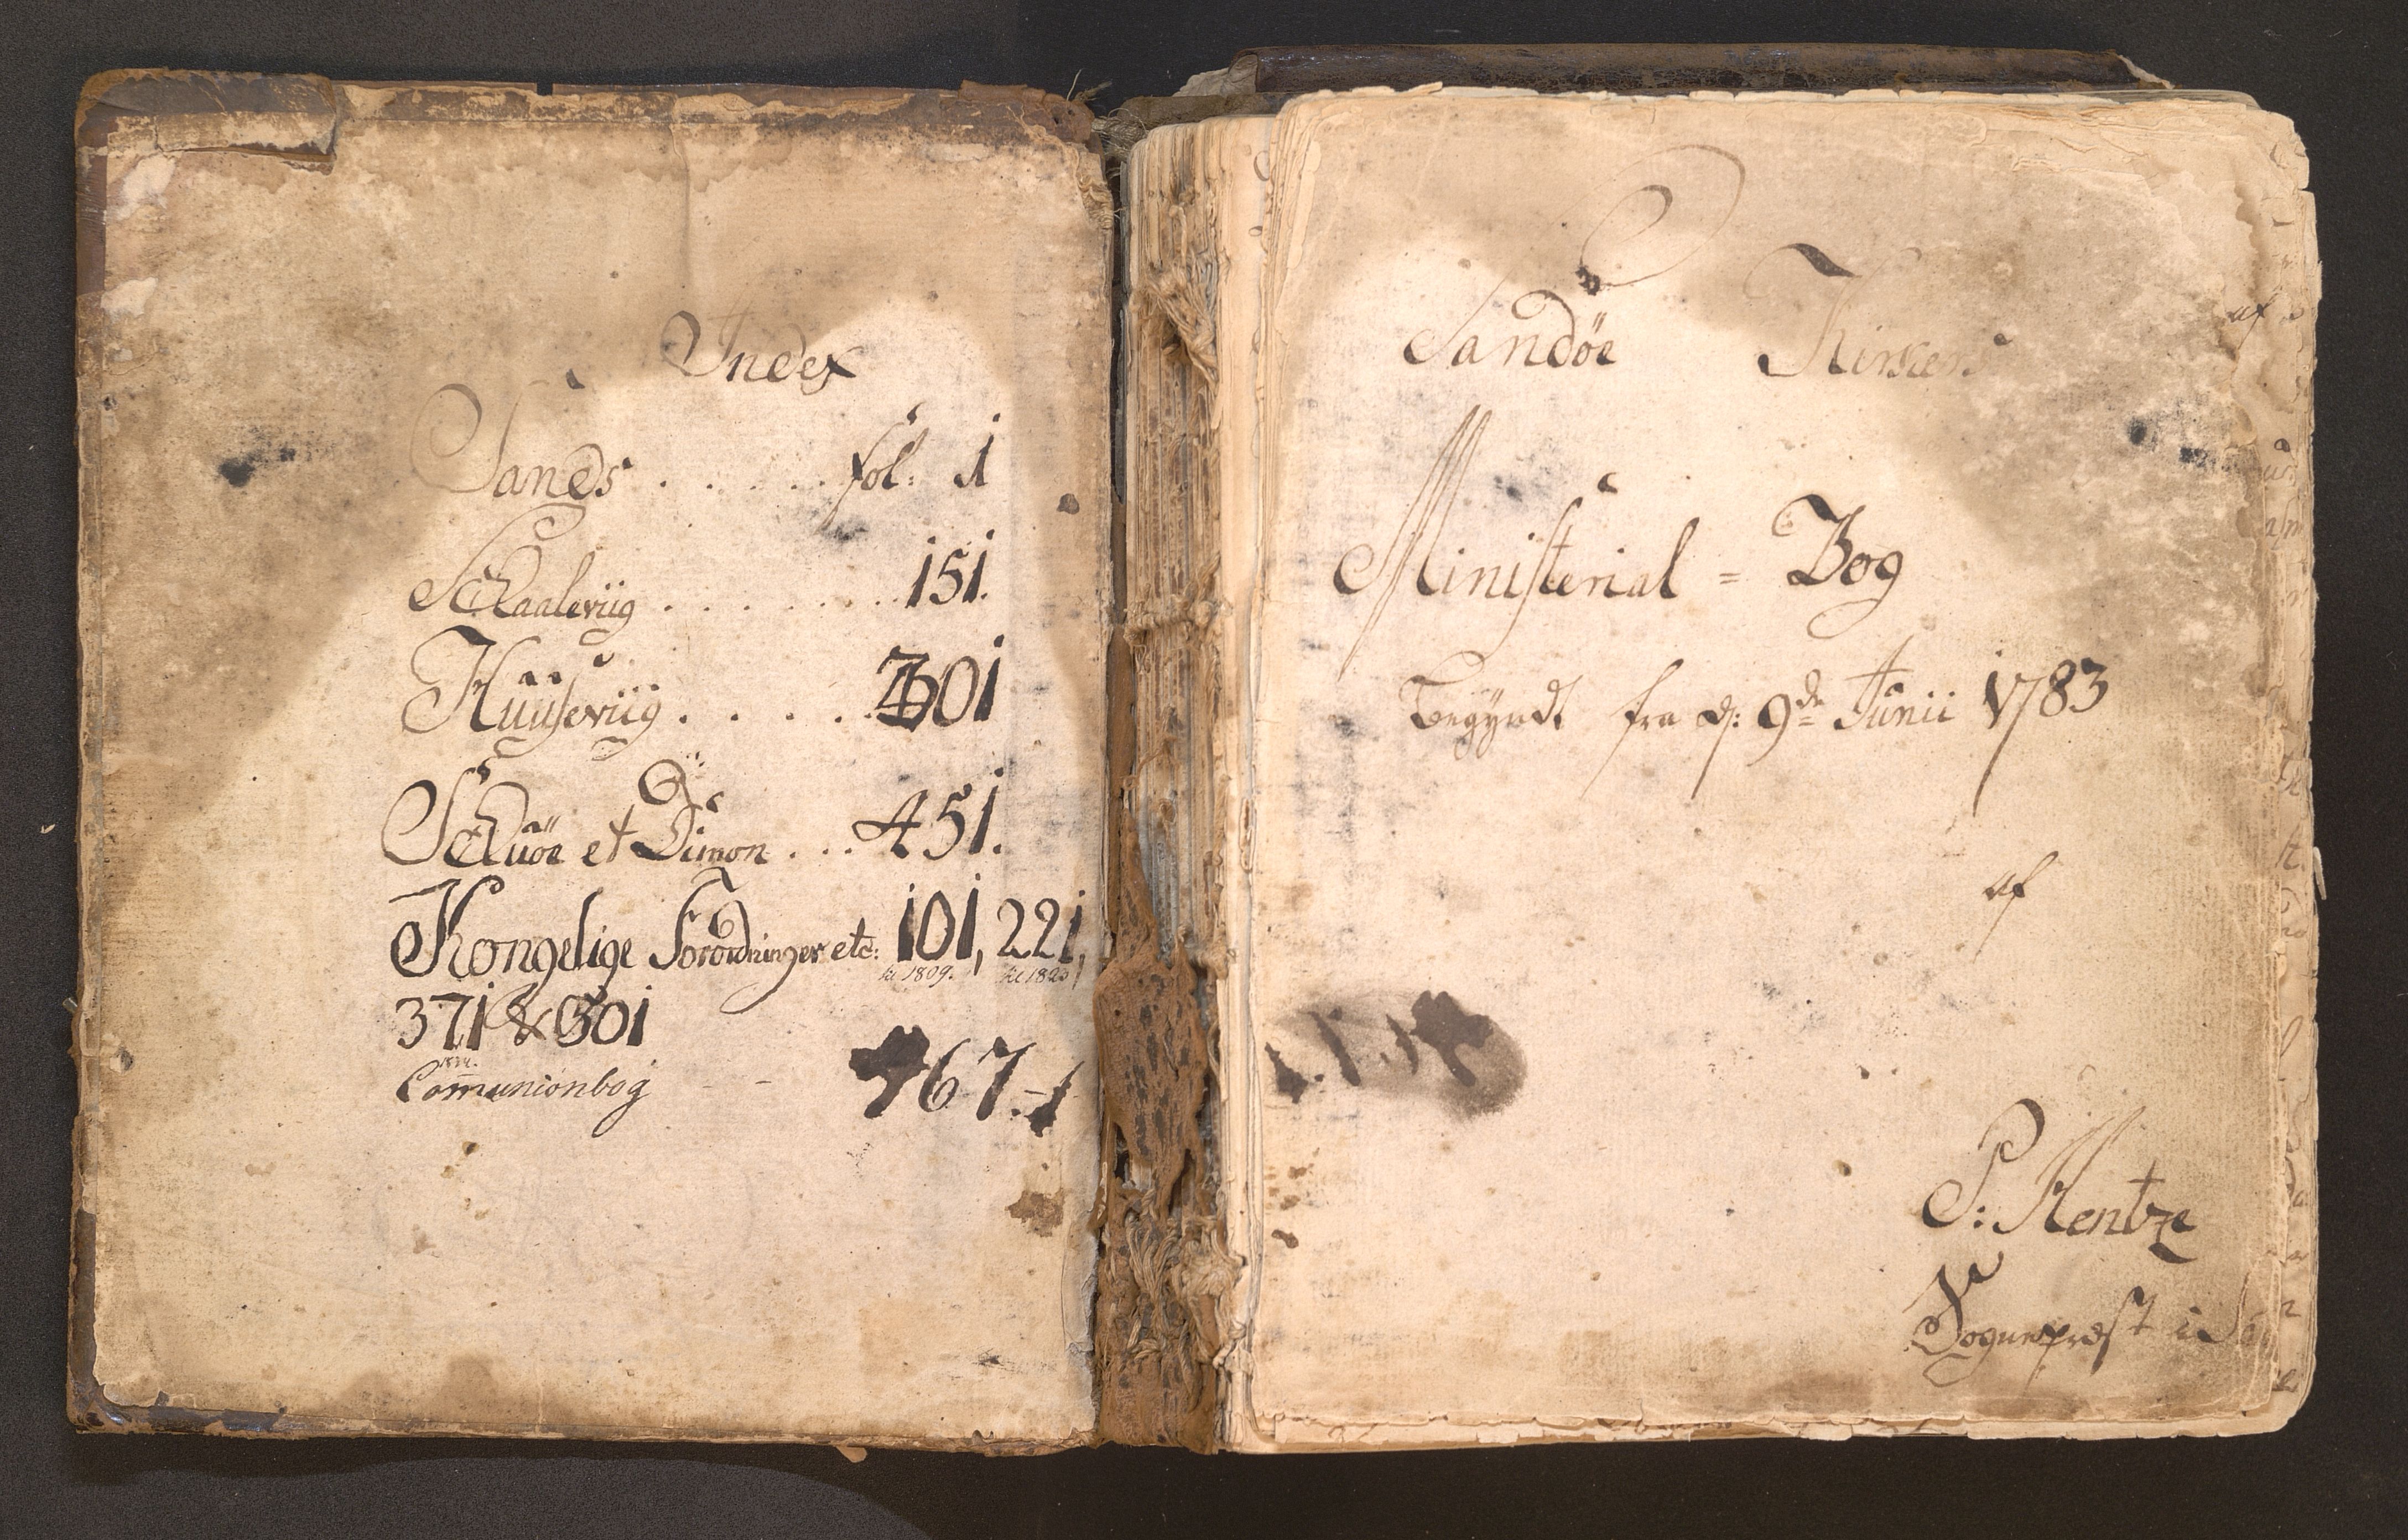 Index
Sands . . . . . fol: 1
Schaaleviig . . . . . . . 151.
Huuseviig . . . . . 301
Schuöe et Dimon . . . 451.
Kongelige Forordninger etc: 101, 221,
til 1809. til 1820
371 & 501
Communionbog - - 467.-1
Sandöe Kirkes
Ministerial = Bog
Begyndt fra d: 9de Junii 1783
af
P: Hentze
Sognepræst i